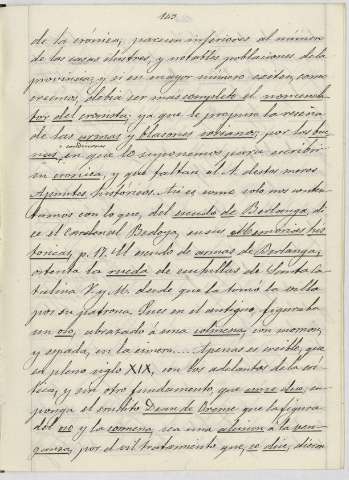 163
de la crónica, parecen inferiores al número
de las casas ilustres, y notables poblaciones de la
provincia; y si en mayor número existen, como
creemos, debía ser mas completo el nomencla-
tor del cronista; ya que le propina la reseña
de las armas y blasones sorianos; por las bue-
nas condiciones en que lo suponemos para escribir
su crónica, y que faltan al A. destos meros
Apuntes históricos. Así es como solo nos conten-
tamos con lo que, del escudo de Berlanga, di-
ce el Cardenal Bedoya, en sus Memorias his-
tóricas, p. 17. El escudo de armas de Berlanga,
ostenta la rueda de cuchillas de Santa Ca-
talina V. y M. desde que la tomó la villa
por su patrona. Pues en el antiguo, figuraba
un oso, abrazado á una colmena, con
y espada, en la cimera.... Apenas es creible, que
en pleno siglo XIX, con los adelantos de la crí-
tica, y sin otro fundamento, que su
ponga el erudito Dean de Orense que la figura
del oso y la colmena, sea una alusion á la ven-
ganza, por el vil tratamiento que, se dice, dieron